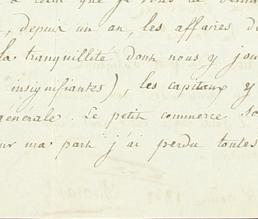 à celui que je vous
, depuis un an, les affaires de
la tranquillité dont nous y jou
insignifiantes), les capitaux y
générale. Le petit commerce so
ur ma part j'ai perdu toutes